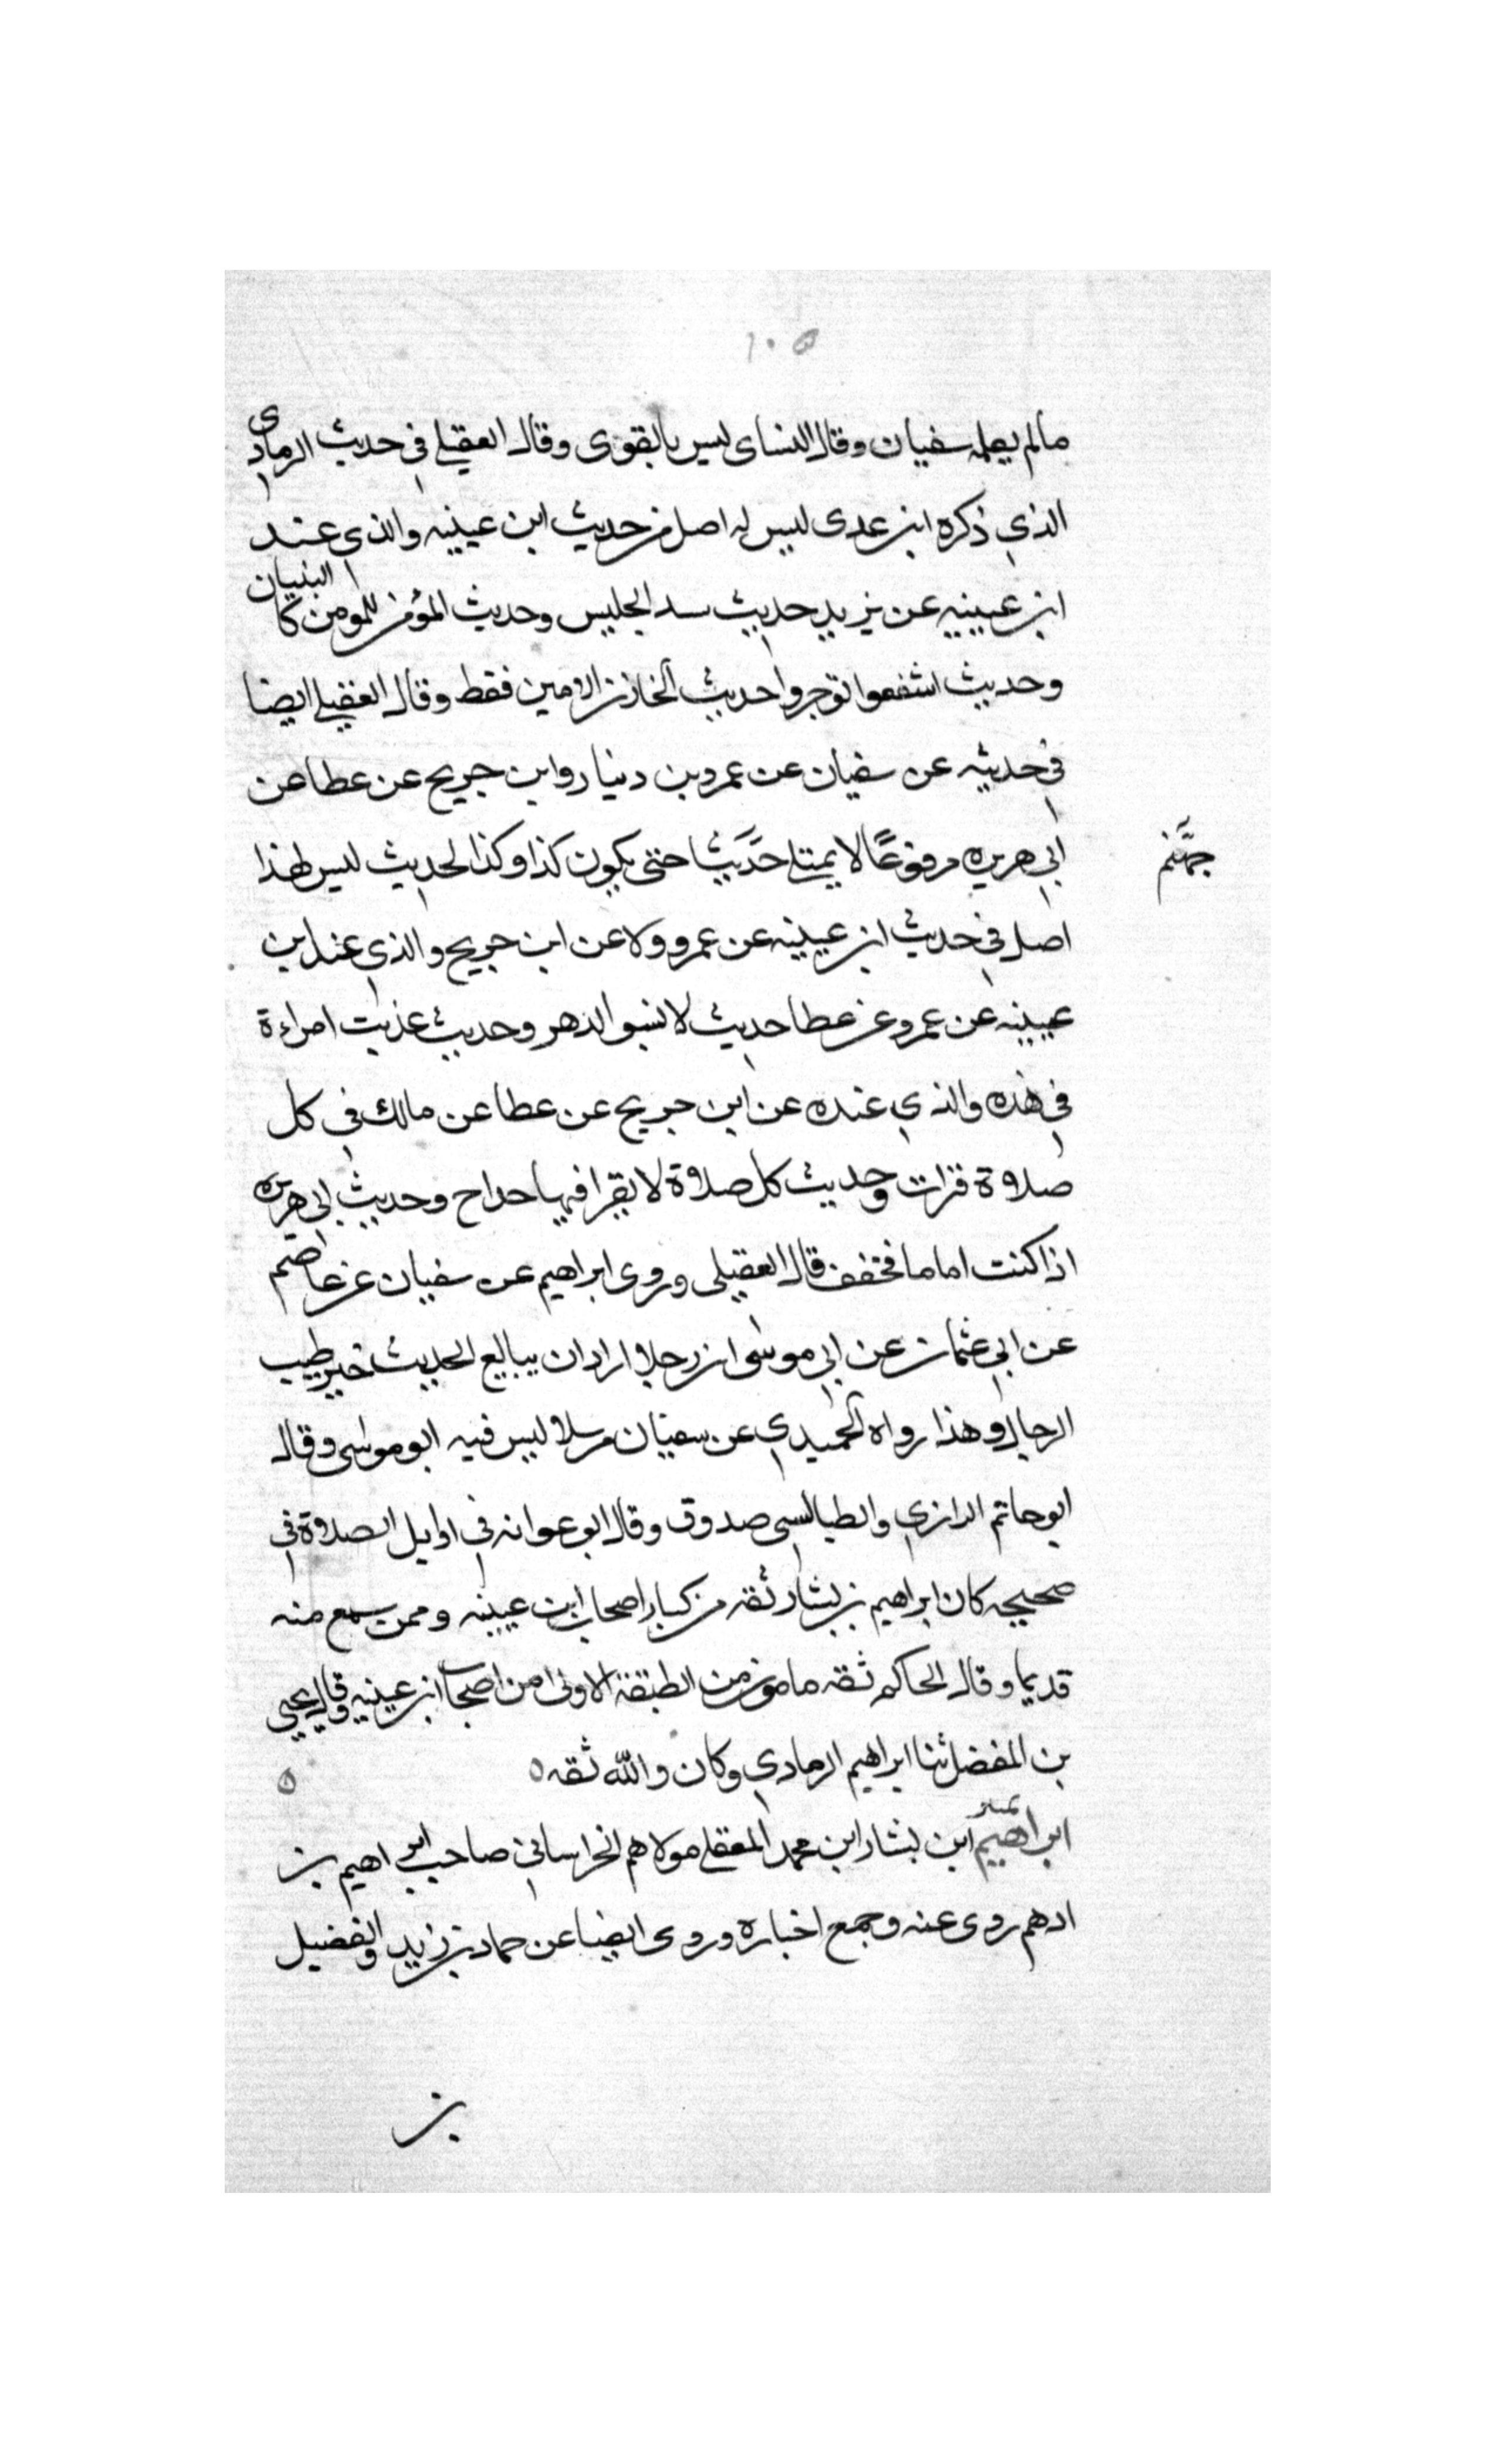 ١٠٥
مالم يعله سفيان وقال النساى ليس بالقوى وقال العقيلي في حديث الرمادى
الذي ذكره ابن عدى ليس له اصل من حديث ابن عيينه والذي عند
ابن عيينه عن يزيد حديث الجليس وحديث المؤمن للمومن كالبنيان
وحديث اشفعوا توجروا حديث الخازن الامين فقط وقال العقيلي ايضا
في حديثه عن سفيان عن عمرو بن دينار وابن جريح عن عطا عن
ابي هريره مرفوعًا لا يمتلي حتى يكون كذا وكذا الحديث ليس لهذا
جهنم
اصل في حديث ابن عيينه عن عمرو ولا عن ابن جريح والذي عند ابن
عيينه عن عمرو عن عطا حديث لا تسبو الدهر وحديث عذبت امراءة
في هذه والذي عنده عن ابن جريح عن عطا عن مالك في كل
صلاة قرات وحديث كل صلاة لا يقرا فيها وحديث ابي هريره
اذا كنت اماما فخفف قال العقيلى وروى ابراهيم عن سفيان عن عاصم
عن ابي عثمان عن ابي موسى ان رجلا اراد ان يبايع الحديث خير طيب
الرجال وهذا رواه الحميدي عن سفيان مرسلا ليس فيه ابو موسى وقال
ابو حاتم الرازي والطيالسي صدوق وقال ابو عوانه في اوايل الصلاة في
صحيحه كان ابراهيم بن بشار ثقه من كبار اصحاب ابن عيينه وممن سمع منه
قديما وقال الحاكم ثقه مامون من الطبقة الاولى من اصحاب ابن عيينه وقال يحيى
بن المفضل ثنا ابراهيم الرمادي وكان والله ثقه ه
ابراهيم ابن بشار ابن محمد المعقلي مولاهم الخراساني صاحب ابراهيم بن
ادهم روى عنه وجمع اخباره وروى ايضا عن حماد بن زايد والفضيل
بن